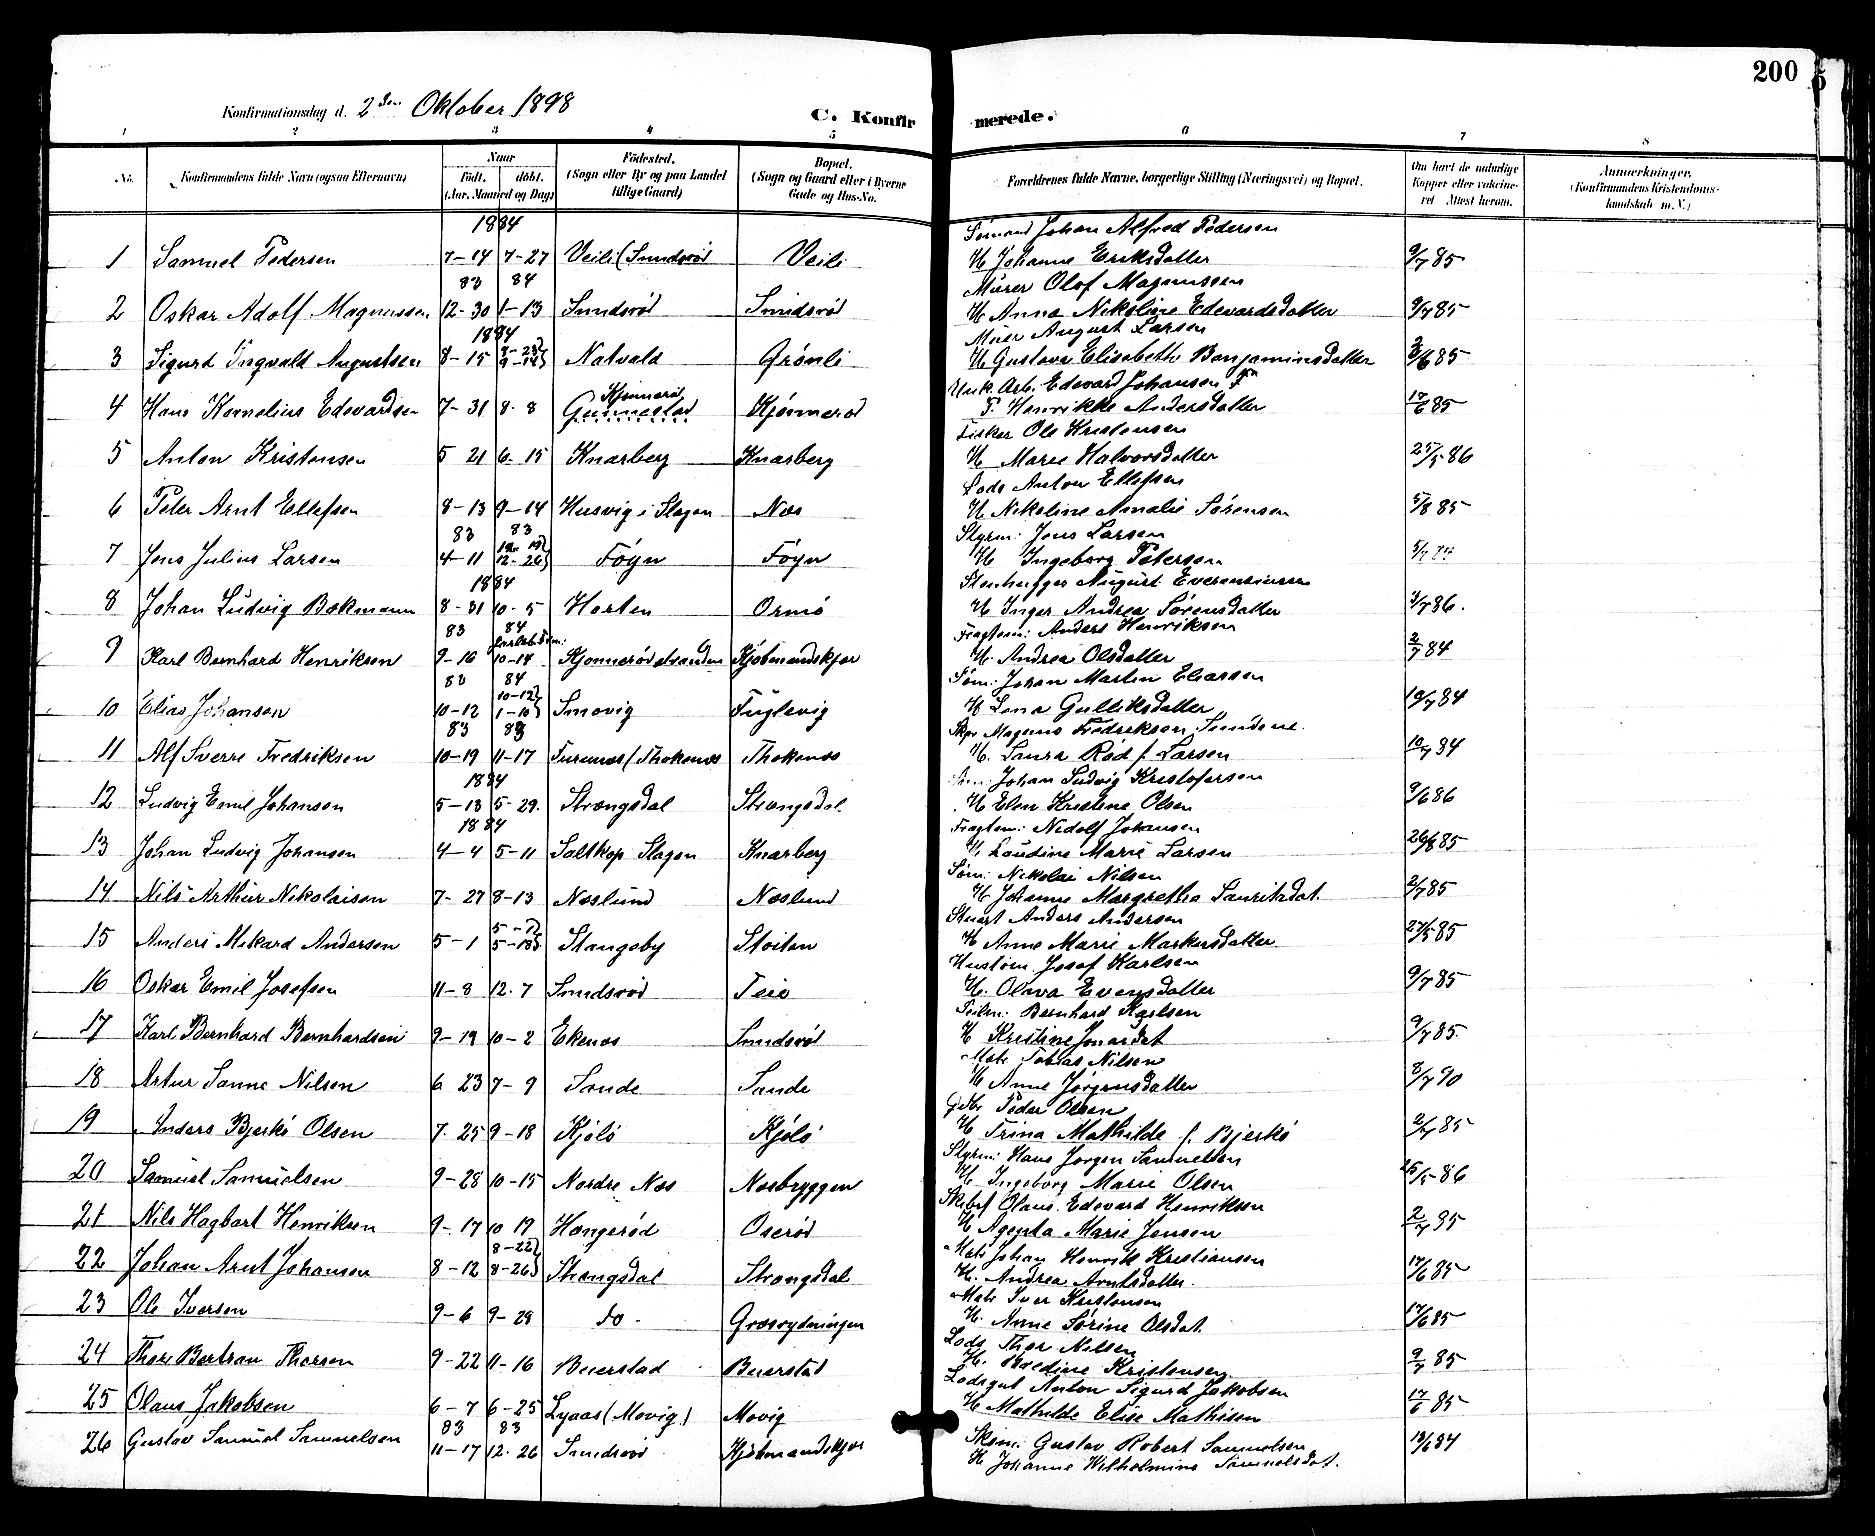 200
Konfirmationsdag d. 2den Oktober 1898
C. Konfirmerede.
1 2 3 4 5 6 7 8
No. Konfirmandens fulde Navn (ogsaa Efternavn) Naar Födt. döbt. (Aar, Maaned og Dag) Födested. (Sogn eller By og paa Landet tillige Gaard) Bopæl. (Sogn og Gaard eller i Byerne Gade og Hus-No. Forældrenes fulde Navne, borgerlige Stilling (Næringsvei) og Bopæl. Om havt de naturlige Kopper eller vaccineret Attest herom. Anmerkninger. (Konfirmandens Kristendomskundskab m.V.)
1884 Sømand Johan Alfred Pedersen
1 Samuel Pedersen 7-14 7-27 Veili (Smidsrød Veili H Johanne Eriksdatter 9/7 85
83 84 Murer Olof Magnussen
2 Oskar Adolf Magnussen 12-30 1-13 Smidsrød Smidsrød H Anna Nikoline Edevardsdatter 9/7 85
1884 August Larsen
3 Sigurd Ingvald Augustsen 8-15 Natvald Grønli H Gustava Elisabeth Benjaminsdatter
Edevard Johansen
4 Hans Kornelius Edevardsen 7-31 8-8 Kjønnerød Gunnestad Kjønnerød F. Henrikke Andersdatter 17/6 85
Fisker Ole Kristensen
5 Anton Kristensen 5 21 6-15 Knarberg Knarberg H Marie Halvorsdatter 25/5 86
Lods Anton Ellefsen
6 Peter Arnt Ellefsen 8-13 9-14 Husvig i Slagen Næs H Nikoline Amalie Sørensen 5/8 85
83 83 Styrm: Jens Larsen
7 Jens Julius Larsen 4-11 12-26 Føyn Føyn H Ingeborg Petersen
1884 Stenhugger August
8 Johan Ludvig Bekmann 8-31 10-5 Horten Ormø H Inger Andrea Sørensdatter 3/7 86.
83 84 Fragtem: Anders Henriksen
9 Karl Bernhard Henriksen 9-16 10-14 Kjønnerødstranden Kjøbmandskjær H. Andrea Olsdatter 2/7 84
83 84 Søm: Johan Martin Eliassen
10 Elias Johansen 10-12 10-12 1-10 Smovig Fuglevig H Lena Gulliksdatter 10/7 84
83 83 Skpr Magnus Fredriksen Sundene.
11 Alf Sverre Fredriksen 10-19 11-17 Furunes (Thokenæs Thokenæs H. Laura Rød f. Larsen 10/7 84
1884 Søm: Johan Ludvig Kristofersen
12 Ludvig Emil Johansen 5-13 5-29. Strengsdal Strengsdal H Elen Kristine Olsen 3/6 86
1884 Fragtem: Nedolf Johansen
13 Johan Ludvig Johansen 4-4 5-11 Saltkop Slagen Knarberg H. Laudine Marie Larsen 26/6 85
Søm: Nikolai Nilsen
14 Nils Arthur Nikolaisen 7-27 8-13 Næslund Næslund H Johanne Margrethe Lauritsdat. 2/7 85
Stuert Anders Andersen
15 Anders Mekard Andersen 5-1 Stangeby Stoiten H Anne Marie Markusdatter 27/5 85
Josef Karlsen
16 Oskar Emil Josefsen 11-8 12-7 Smidsrød Teie H. Olava Evensdatter 9/7 85
Bernhard Karlsen
17 Karl Bernhard Bernhardsen 9-19 10-2 Ekenes Smidsrød H Kristine Jonasdat 9/7 85.
Matr Tobias Nilsen
18 Artur Sanne Nilsen 6 23 7-9 Sande Sande H Anne Jørgensdatter 3/7 90
Gdbr Peder Olsen
19 Anders Bjerkø Olsen 7-25 9-18 Kjølø Kjølø H Trina Mathilde f. Bjerkø 2/7 85
Styrm: Hans Jørgen Samuelsen
20 Samuel Samuelsen 9-28 10-15 Nordre Næs Næsbryggen H Ingeborg Marie Olsen 25/5 86
Olaus Edevard Henriksen
21 Nils Hagbart Henriksen 9-17 10 19 Hengerød Oserød H Agenta Marie Jensen 2/7 85
8-22 Matr Johan Henrik Kristiansen
22 Johan Arnt Johansen 8-12 8-26 Strengsdal Strengsdal H. Andrea Arntsdatter. 17/6 85
Matr Iver Kristensen
23 Ole Iversen 9-6 9-29 do. Græsrydningen H. Anne Sørine Olsdat. 17/6 85
Lods Thor Nilsen
24 Thore Bertran Thorsen 9-22 11-16 Buerstad Buerstad H. Bredine Kristensen 9/7 85
Lodsgut Anton Sigurd Jakobsen
25 Olaus Jakobsen 6-7 6-25 Lyaas (Movig) Movig H Mathilde Elise Mathisen 17/6 85
83 83 Gustav Robert Samuelsen
26 Gustav Samuel Samuelsen 11-17 12-26 Smidsrød Kjøbmandskjær H Johanne Wilhelmine Samuelsdat. 18/6 84